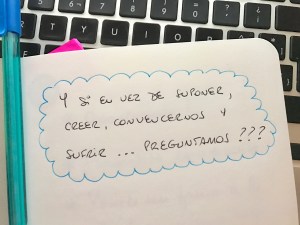 Y SI EN VEZ DE SUPONER,
CREER, CONVENCERNOS Y
SUFRIR ... PREGUNTAMOS ???